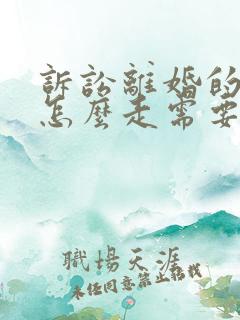 訴訟離婚的
怎麼走需要
職場天涯
未經同意禁止轉載